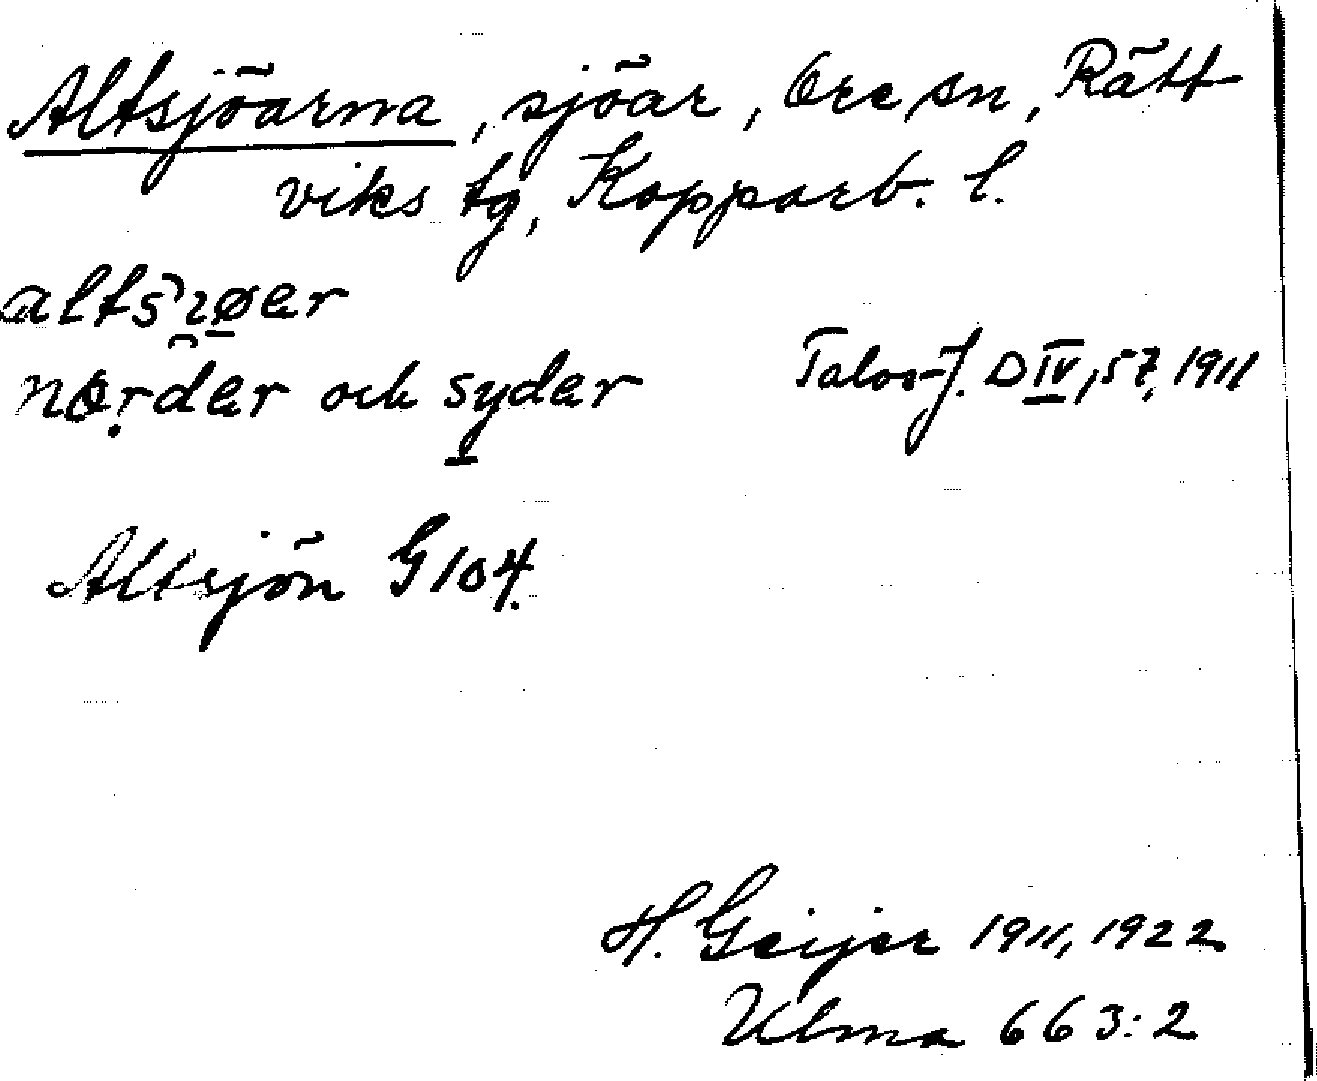 Altsjöarna, sjöar, Ore sn, Rätt
viks tg, Kopparb. l.
norder och syder
Talos-f. D IV, 57, 1911
Altsjön G 104.
H. Geijer 1911, 1922
Ulma 663:2